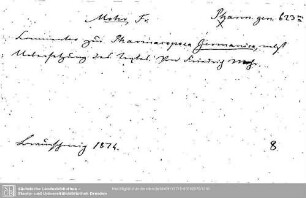 Mohr, Fr. Pharm. gen. 623
Commentar zur Pharmacopoea Germanica, nebst
Uebersetzung des Textes. Von Friedrich Mohr.
Braunschweig 1874. 8.
Sächsische Landesbibliothek -
Staats- und Universitätsbibliothek Dresden